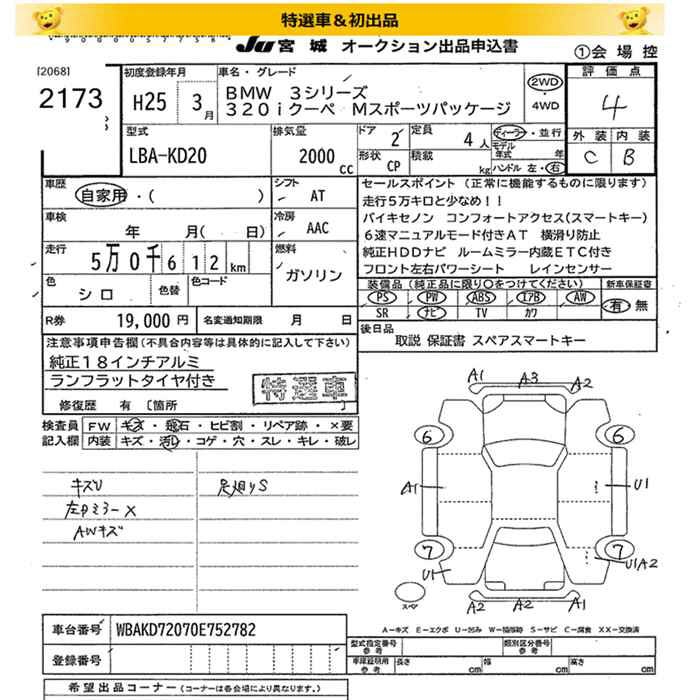 特選車＆初出品
Ju 宮城 オークション出品申込書
①会場控
[2068]
2173
初度登録年月
H25 3月
車名・グレード
BMW 3シリーズ
320iクーペ Mスポーツパッケージ
2WD
・4WD
評価点
4
外装 内装
C B
型式
LBA-KD20
排気量
2000 cc
ドア 2
形状 CP
定員 4人
積載 kg
ディーラー・並行
モデル年式 年
ハンドル 左・右
車歴
自家用・( )
シフト
AT
車検
年 月( 日)
冷房
AAC
走行
5万0千612km
燃料
ガソリン
色
シロ
色替
色コード
R券 19,000円
名変通知期限 月 日
セールスポイント (正常に機能するものに限ります)
走行5万キロと少なめ！！
バイキセノン コンフォートアクセス(スマートキー)
6速マニュアルモード付きAT 横滑り防止
純正HDDナビ ルームミラー内蔵ETC付き
フロント左右パワーシート レインセンサー
装備品 (純正品に限り○をつけてください)
新車保証書
PS PW ABS エアB AW
SR ナビ TV カワ
有・無
後日品
取説 保証書 スペアスマートキー
注意事項申告欄 (不具合内容等は具体的に記入して下さい)
純正18インチアルミ
ランフラットタイヤ付き
特選車
修復歴 有 [箇所
検査員記入欄
FW キズ・飛石・ヒビ割・リペア跡・×要
内装 キズ・汚レ・コゲ・穴・スレ・キレ・破レ
キズU
左Dミラー X
AWキズ
A1 A3 A2
6 6
A1 U1
7 7
U1 U1A2
スペア
A2 A2 A1
A－キズ E－エクボ U－凹み W－補修跡 S－サビ C－腐食 XX－交換済
車台番号 WBAKD72070E752782
登録番号
型式指定番号
参考
類別区分番号
参考
車庫証明用
参考
長さ cm
幅 cm
高さ cm
希望出品コーナー (コーナーは各会場により異なります。)